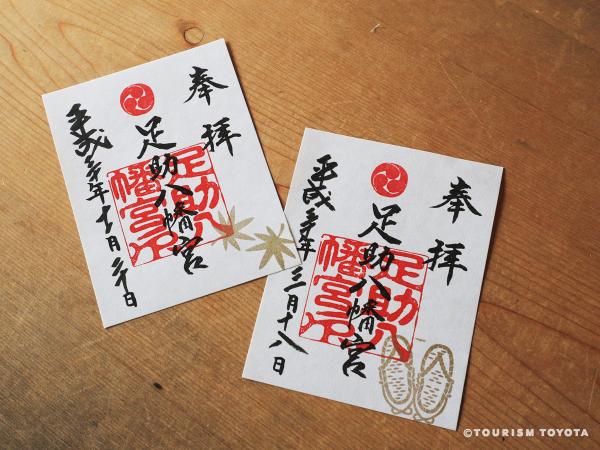 奉拝
足助八幡宮
足助八幡宮印
平成 年十 月 日
奉拝
足助八幡宮
足助八幡宮印
平成 年三月十八日
©TOURISM TOYOTA